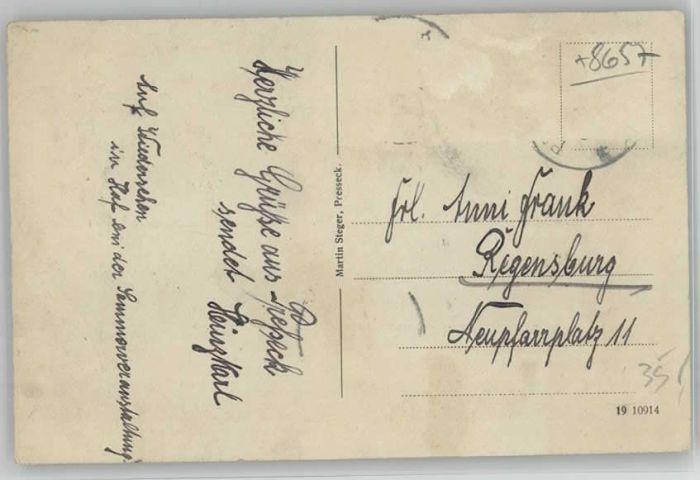 Herzliche Grüße aus
Presseck
sendet Heinz Karl
Auf Wiedersehen
in Hof bei der Sommerveranstaltung.
Martin Steger, Presseck.
+8657
Frl. Anni Frank
Regensburg
Neupfarrplatz 11
35
19 10914